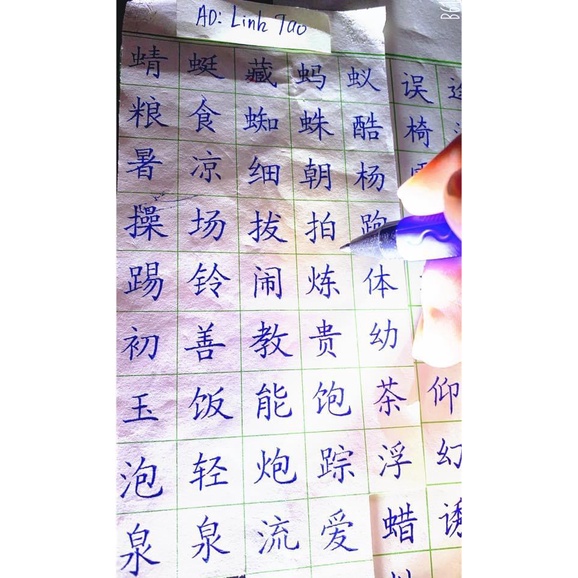 AD: Linh Tao
蜻 蜓 藏 蚂 蚁 误
粮 食 蜘 蛛 酷 椅
暑 凉 细 朝 杨
操 场 拔 拍 跑
踢 铃 闹 炼 体
初 善 教 贵 幼
玉 饭 能 饱 茶 仰
泡 轻 炮 踪 浮 幻
泉 泉 流 爱 蜡 诱